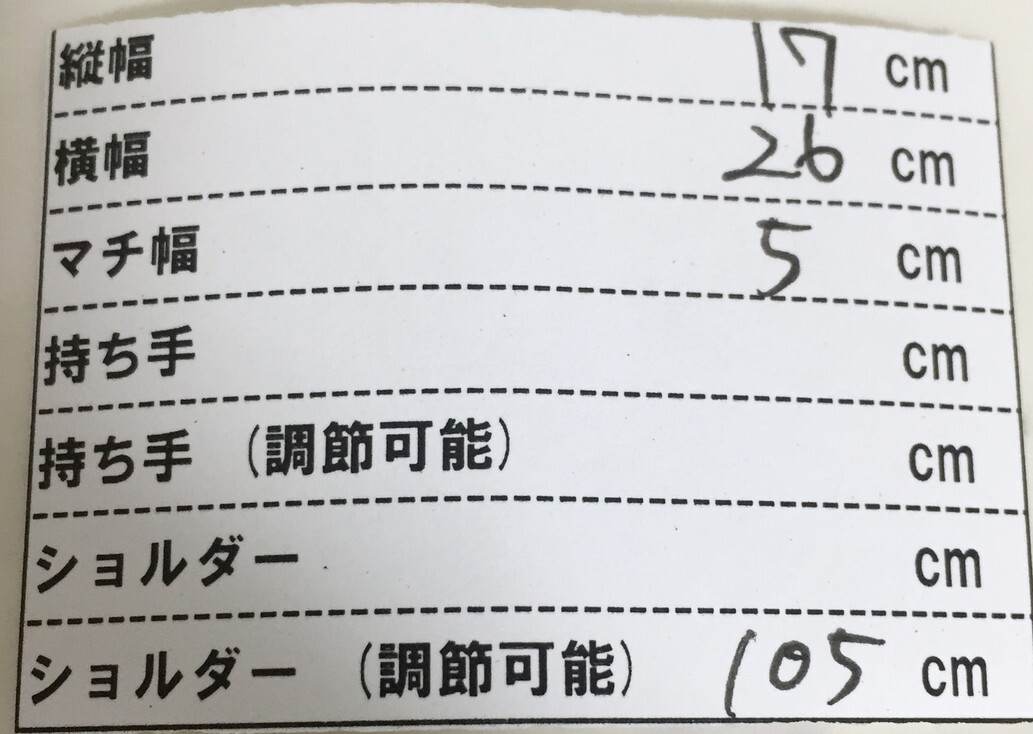 縦幅 17 cm
横幅 26 cm
マチ幅 5 cm
持ち手 cm
持ち手 (調節可能) cm
ショルダー cm
ショルダー (調節可能) 105 cm